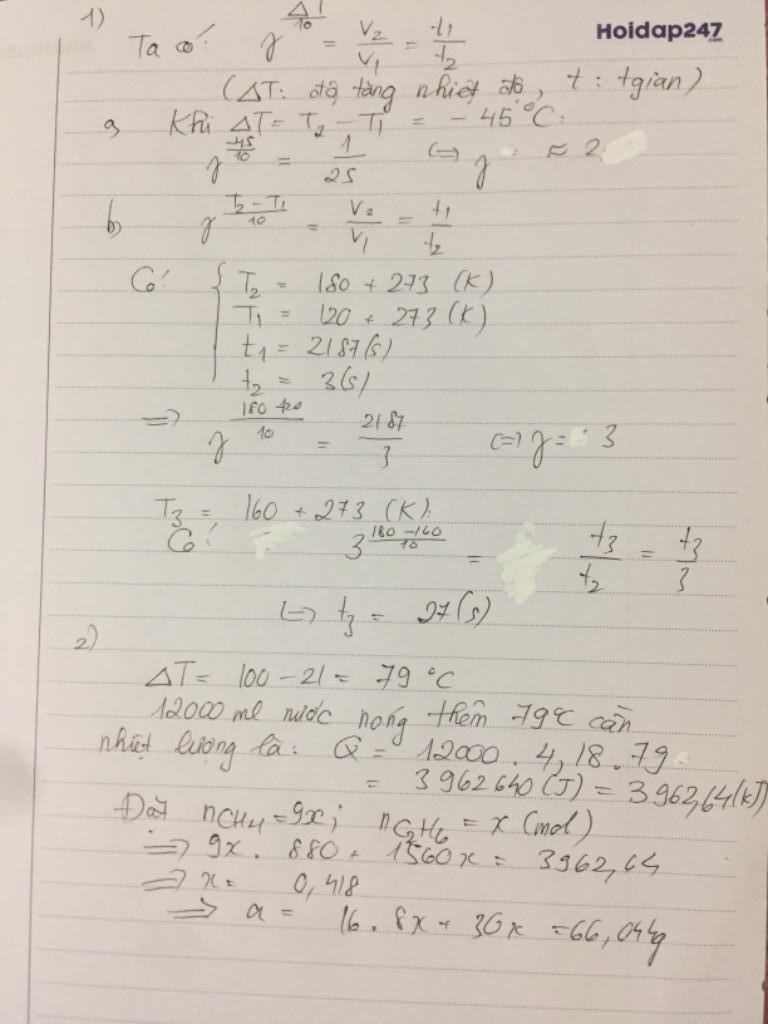 Hoidap247.com
1)
Ta có: γ^(ΔT/10) = V₂/V₁ = t₁/t₂
(ΔT: độ tăng nhiệt độ, t: tgian)
a, Khi ΔT = T₂ - T₁ = -45°C.
γ^(-45/10) = 1/25 <=> γ ≈ 2
b, γ^((T₂ - T₁)/10) = V₂/V₁ = t₁/t₂
Có: { T₂ = 180 + 273 (K)
T₁ = 120 + 273 (K)
t₁ = 2187(s)
t₂ = 3(s)
=> γ^((180-120)/10) = 2187/3 <=> γ = 3
T₃ = 160 + 273 (K).
Có: 3^((180-160)/10) = t₃/t₂ = t₃/3
<=> t₃ = 27(s)
2)
ΔT = 100 - 21 = 79 °C
12000 ml nước nóng thêm 79°C cần
nhiệt lượng là: Q = 12000 . 4,18 . 79
= 3962640 (J) = 3962,64 (kJ)
Đặt nCH₄ = 9x; nC₂H₆ = x (mol)
=> 9x . 880 + 1560x = 3962,64
=> x = 0,418
=> a = 16 . 8x + 30x = 66,044g